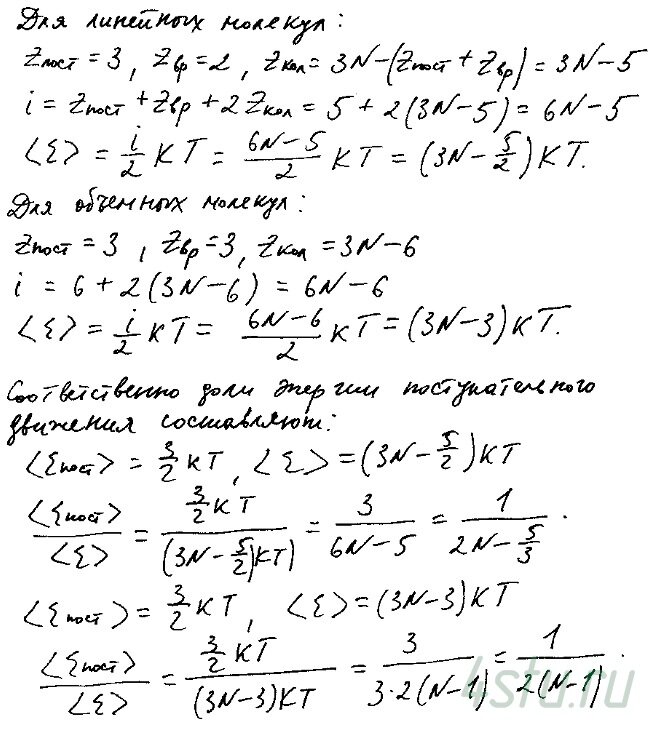 Для линейных молекул:
Zпост = 3, Zвр = 2, Zкол = 3N − (Zпост + Zвр) = 3N − 5
i = Zпост + Zвр + 2 Zкол = 5 + 2(3N − 5) = 6N − 5
<ε> = i/2 KT = (6N − 5)/2 KT = (3N − 5/2) KT.
Для объемных молекул:
Zпост = 3, Zвр = 3, Zкол = 3N − 6
i = 6 + 2(3N − 6) = 6N − 6
<ε> = i/2 KT = (6N − 6)/2 KT = (3N − 3) KT.
Соответственно доли энергии поступательного
движения составляют:
<εпост> = 3/2 KT, <ε> = (3N − 5/2) KT
<εпост>/<ε> = 3/2 KT/((3N − 5/2)KT) = 3/(6N − 5) = 1/(2N − 5/3).
<εпост> = 3/2 KT, <ε> = (3N − 3) KT
<εпост>/<ε> = 3/2 KT/((3N − 3)KT) = 3/(3·2(N − 1)) = 1/(2(N − 1)).
4stu.ru